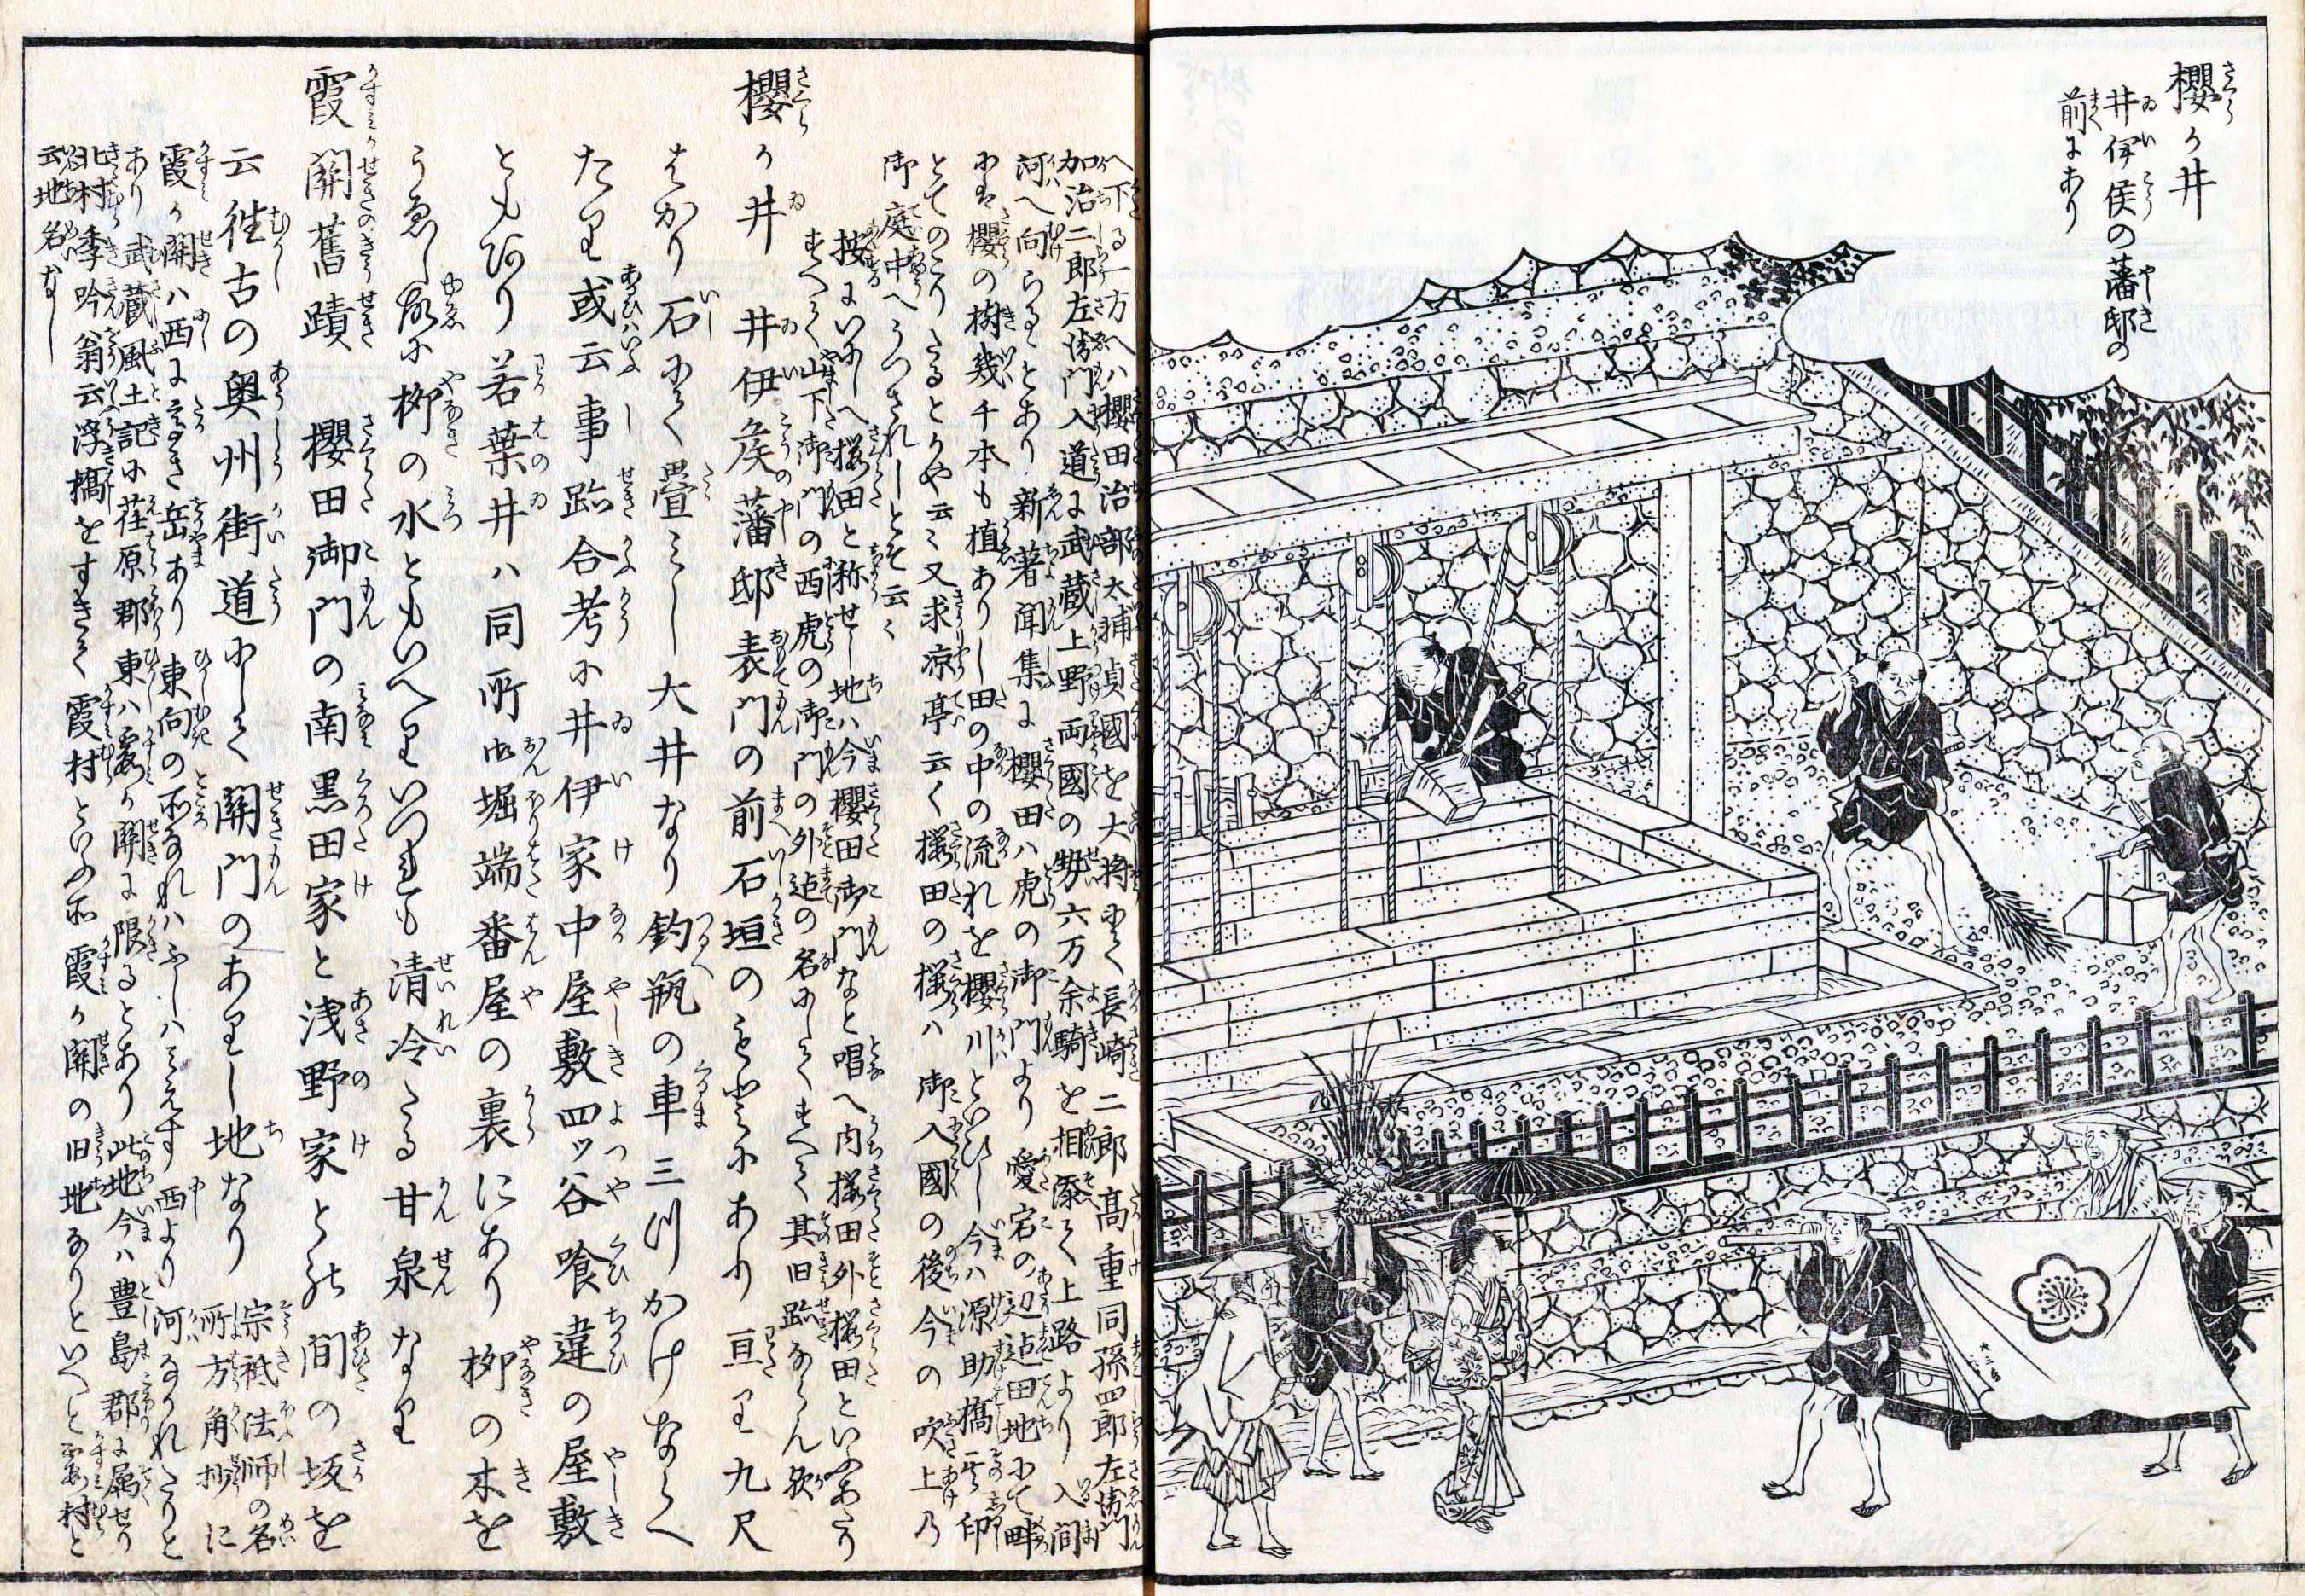 櫻か井
井伊侯の藩邸の
前にあり
へ下る一方へハ櫻田治部大輔貞國を大将にて長崎二郎高重同孫四郎左衛門
加治二郎左衛門入道に武蔵上野両國の勢六万余騎を相添て上路より入間
河へ向らるとあり新著聞集に櫻田ハ虎の御門より愛宕の辺迠田地にて畔
にハ櫻の樹幾千本も植ありし田の中の流れを櫻川といひし今ハ源助橋に其印
とてのこりたるとかや云々又求凉亭云く櫻田の櫻ハ御入國の後今の吹上乃
御庭中へうつされしとそ云く
按にいにしへ桜田と称せし地ハ今櫻田御門なと唱へ内桜田外桜田といふあたり
すへて山下御門の西虎の御門の外迠の名にしてすへて其旧跡ならん欤
櫻か井 井伊侯藩邸表門の前石垣のもとにあり亘り九尺
はかり石にて畳みし大井なり釣瓶の車三つかけならへ
たり或云事跡合考に井伊家中屋敷四ッ谷喰違の屋敷
ともあり若葉井ハ同所御堀端番屋の裏にあり栁の木を
うゑし故に栁の水ともいへりいつれも清冷たる甘泉なり
霞関舊蹟 櫻田御門の南黒田家と浅野家との間の坂を
云往古の奥州街道にして関門のありし地なり 宗祗法師の名所方角抄に
霞か関ハ西に高き岳あり東向の所なれハふしハみえす西より河なかれたりと
あり武蔵風土記に荏原郡東ハ霞か関に限るとあり此地今ハ豊島郡に属せり
北村季吟翁云浮橋をすきて霞村といふ所霞か関の旧地なりといへと霞村と
云地名なし